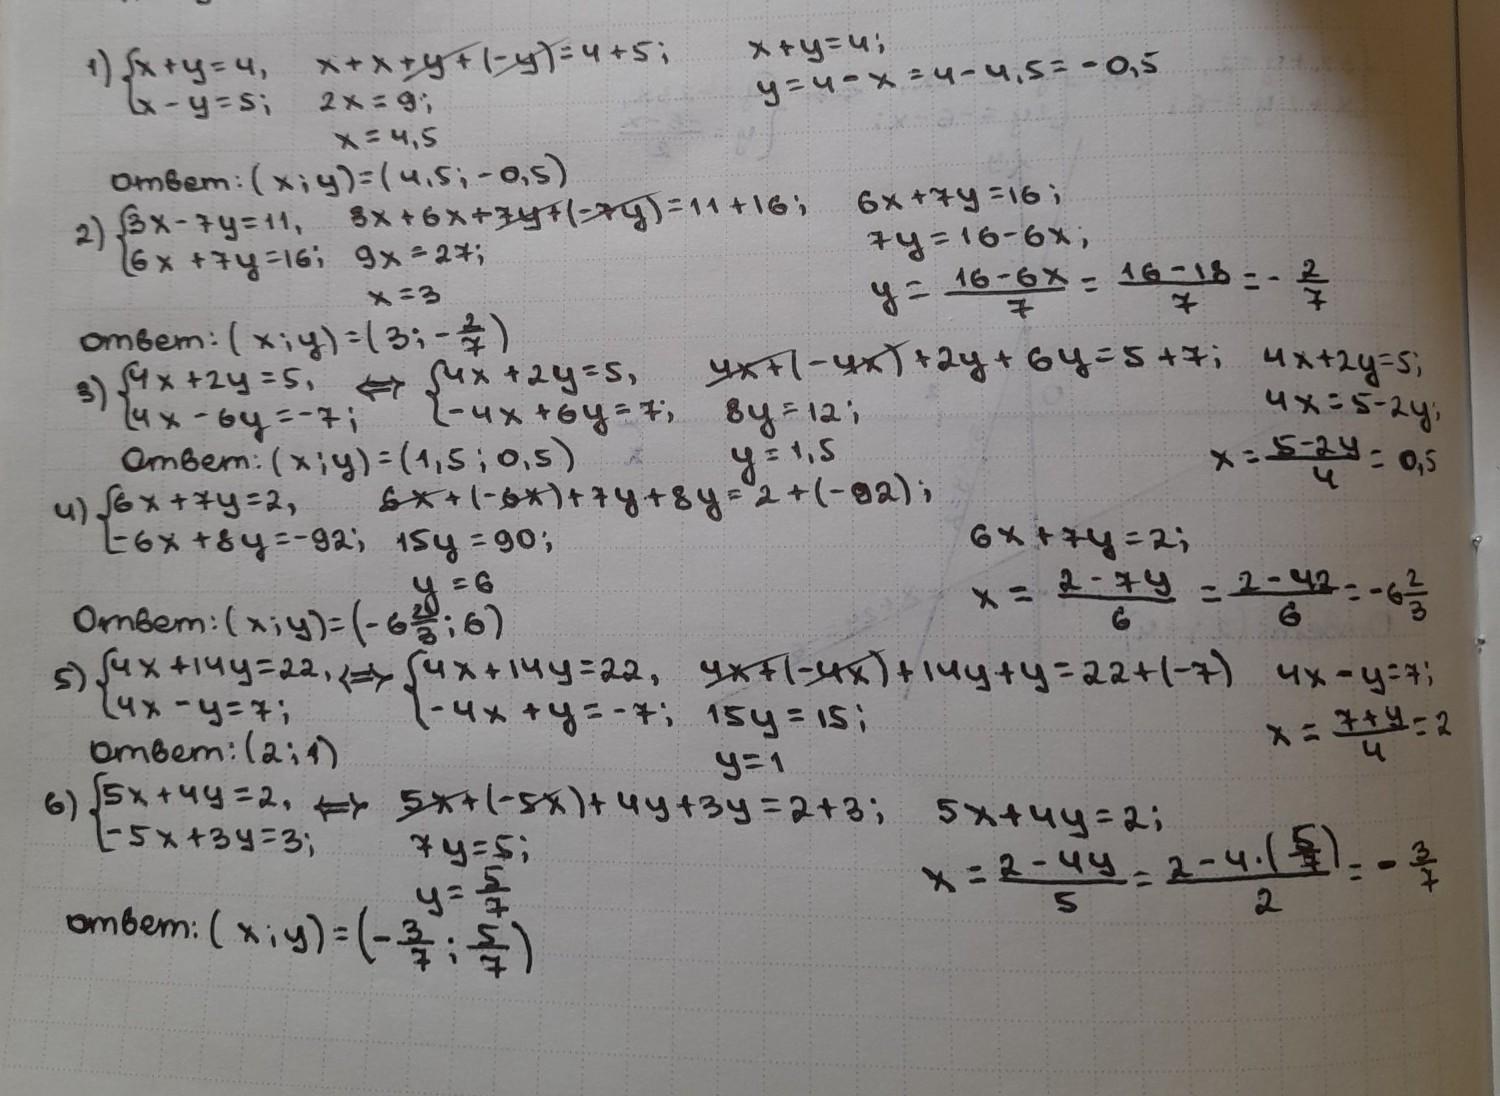 1) {x+y=4, x+x+y+(-y)=4+5; x+y=4;
x-y=5; 2x=9; y=4-x=4-4,5=-0,5
x=4,5
Ответ: (x;y)=(4,5;-0,5)
2) {3x-7y=11, 3x+6x+7y+(-7y)=11+16; 6x+7y=16;
6x+7y=16; 9x=27; 7y=16-6x;
x=3 y=\frac{16-6x}{7}=\frac{16-18}{7}=-\frac{2}{7}
Ответ: (x;y)=(3;-\frac{2}{7})
3) {4x+2y=5, ⇔ {4x+2y=5, 4x+(-4x)+2y+6y=5+7; 4x+2y=5;
4x-6y=-7; -4x+6y=7; 8y=12; 4x=5-2y;
Ответ: (x;y)=(1,5;0,5) y=1,5 x=\frac{5-2y}{4}=0,5
4) {6x+7y=2, 6x+(-6x)+7y+8y=2+(-92);
-6x+8y=-92; 15y=90; 6x+7y=2;
y=6 x=\frac{2-7y}{6}=\frac{2-42}{6}=-6\frac{2}{3}
Ответ: (x;y)=(-6\frac{2}{3};6)
5) {4x+14y=22, ⇔ {4x+14y=22, 4x+(-4x)+14y+y=22+(-7) 4x-y=7;
4x-y=7; -4x+y=-7; 15y=15; x=\frac{7+y}{4}=2
Ответ: (2;1) y=1
6) {5x+4y=2, ⇔ 5x+(-5x)+4y+3y=2+3; 5x+4y=2;
-5x+3y=3; 7y=5; x=\frac{2-4y}{5}=\frac{2-4·(\frac{5}{7})}{2}=-\frac{3}{7}
y=\frac{5}{7}
Ответ: (x;y)=(-\frac{3}{7};\frac{5}{7})